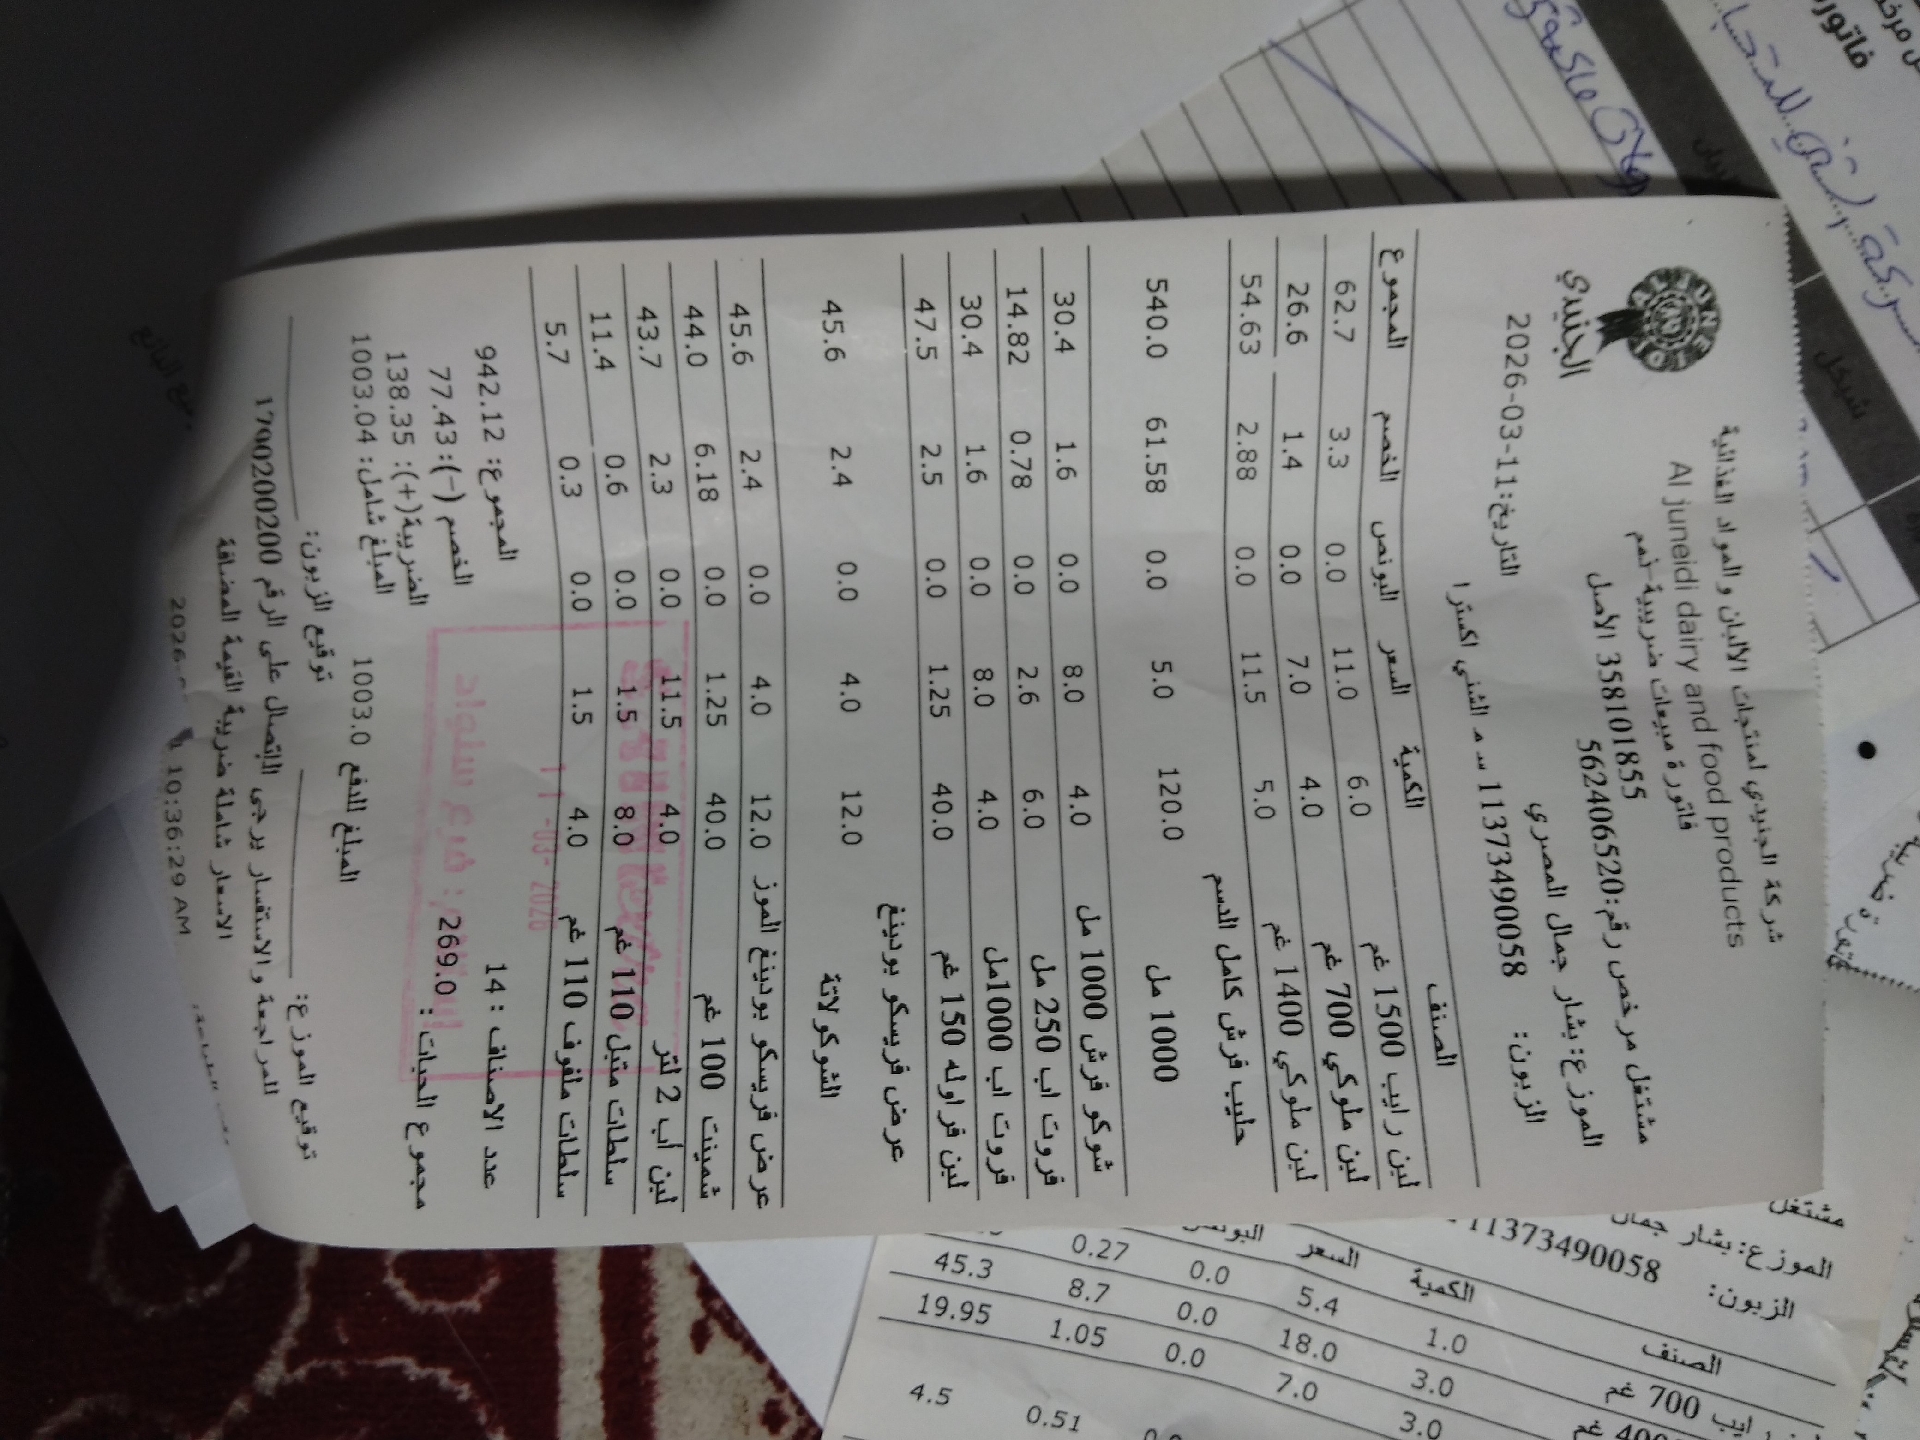 الجنيدي
شركة الجنيدي لمنتجات الالبان والمواد الغذائية
Al juneidi dairy and food products
فاتورة مبيعات ضريبية-نعم
مشتغل مرخص رقم:562406520 الأصل 358101855
الموزع: بشار جمال المصري
التاريخ:11-03-2026
الزبون: 11373490058 س م الشني اكسترا
الصنف الكمية السعر البونص الخصم المجموع
لبن رايب 1500 غم 6.0 11.0 0.0 3.3 62.7
لبن ملوكي 700 غم 4.0 7.0 0.0 1.4 26.6
لبن ملوكي 1400 غم 5.0 11.5 0.0 2.88 54.63
حليب فرش كامل الدسم
1000 مل 120.0 5.0 0.0 61.58 540.0
شوكو فرش 1000 مل 4.0 8.0 0.0 1.6 30.4
فروت اب 250 مل 6.0 2.6 0.0 0.78 14.82
فروت اب 1000مل 4.0 8.0 0.0 1.6 30.4
لبن فراوله 150 غم 40.0 1.25 0.0 2.5 47.5
عرض فريسكو بودينغ
الشوكولاتة 12.0 4.0 0.0 2.4 45.6
عرض فريسكو بودينغ الموز 12.0 4.0 0.0 2.4 45.6
شمينت 100 غم 40.0 1.25 0.0 6.18 44.0
لبن أب 2 لتر 4.0 11.5 0.0 2.3 43.7
سلطات متبل 110 غم 8.0 1.5 0.0 0.6 11.4
سلطات ملفوف 110 غم 4.0 1.5 0.0 0.3 5.7
11-03-2026
فرع سلواد
عدد الاصناف : 14 المجموع: 942.12
مجموع الحبات : 269.0 الخصم (-): 77.43
الضريبة(+): 138.35
المبلغ للدفع 1003.0 المبلغ شامل: 1003.04
توقيع الموزع: توقيع الزبون:
للمراجعة والاستفسار يرجى الاتصال على الرقم 1700200200
الاسعار شاملة ضريبة القيمة المضافة
10:36:29 AM
فاتورة
شيكل
مشتغل
الموزع: بشار جمال
الزبون: 11373490058
الصنف الكمية السعر
رايب 700 غم 1.0 5.4 0.0 0.27
3.0 18.0 0.0 8.7 45.3
3.0 7.0 0.0 1.05 19.95
0.51 4.5